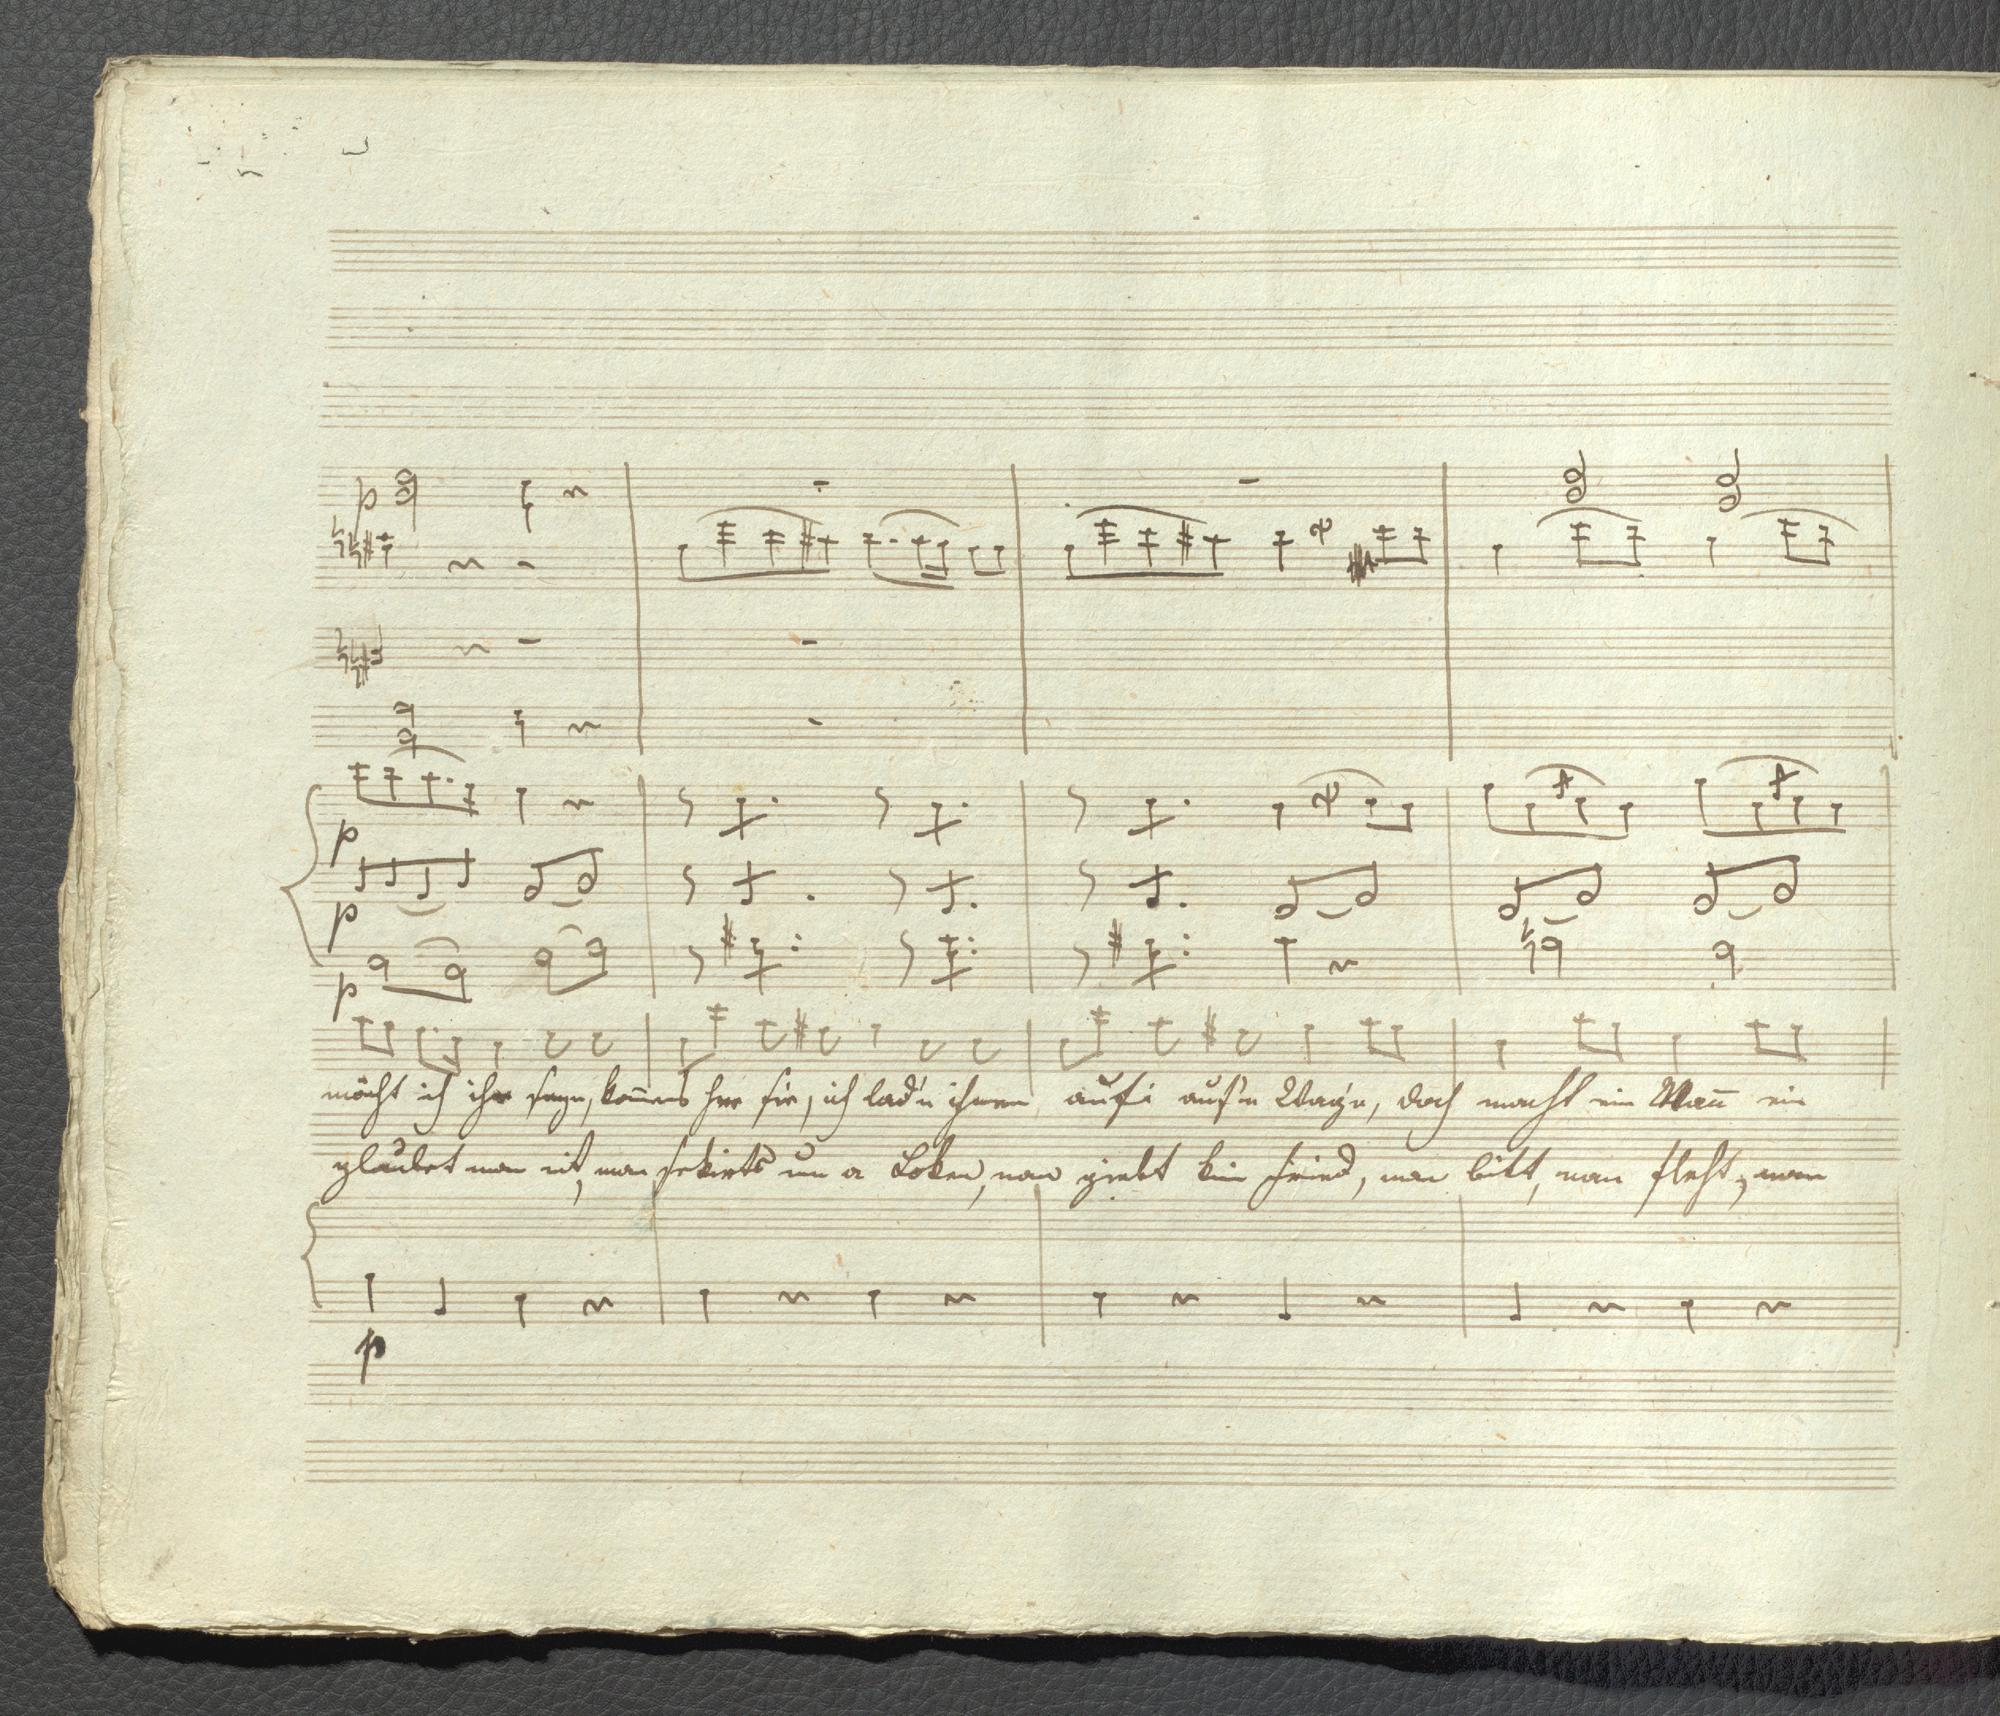 p
p
p
p
möcht ich ihr sagn, kom̄ens her sie, ich lad'n ihnen aufi auf'n Wag'n, doch macht ein Man̄ ein
glaubet man nit, man sekirts um a Loken, man giebt kein Fried, man bitt, man fleht, man
p